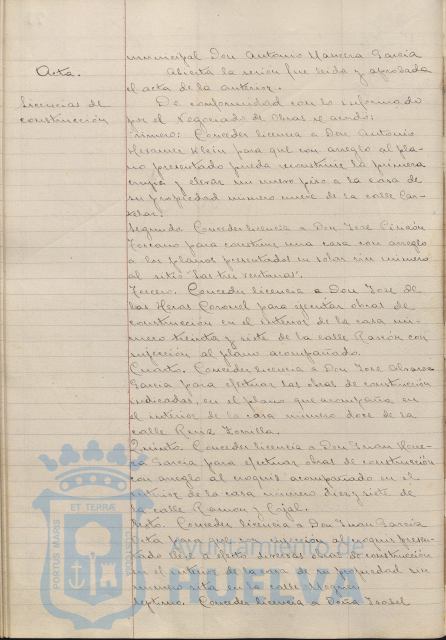 municipal Don Antonio Mancera García
Acta.
Abierta la sesión fue leida y aprobada
el acta de la anterior.
Licencias de
construcción
De conformidad con lo informado
por el Negociado de Obras se acordó:
Primero: Conceder licencia a Don Antonio
Klein para que con arreglo al pla-
no presentado pueda reconstruir la primera
crujia y elevar un nuevo piso a la casa de
su propiedad número nueve de la calle
Segundo. Conceder licencia a Don José
Toscano para construir una casa con arreglo
a los planos presentados en solar sin número
al sitio "Las tres ventanas".
Tercero. Conceder licencia a Don José de
las Heras Coronel para ejecutar obras de
construcción en el interior de la casa nú-
mero treinta y siete de la calle Rascón con
sujeción al plano acompañado.
Cuarto. Conceder licencia a Don José Alvarez
García para efectuar las obras de construcción
indicadas, en el plano que acompaña en
el interior de la casa número doce de la
calle Ruiz Zorrilla.
Quinto. Conceder licencia a Don Juan
García para efectuar obras de construcción
con arreglo al croquis acompañado en el
interior de la casa número diez y siete de
la calle Ramón y Cajal.
Sexto. Conceder licencia a Don Juan García
para que con sujeción al croquis presen-
tado lleve a efecto diversas obras de construcción
en el interior de la casa de su propiedad sin
número sita en la calle Moguer
Septimo. Conceder licencia a Doña Isabel
PORTUS MARIS ET TERRÆ CUSTODIA
Ayuntamiento de
HUELVA